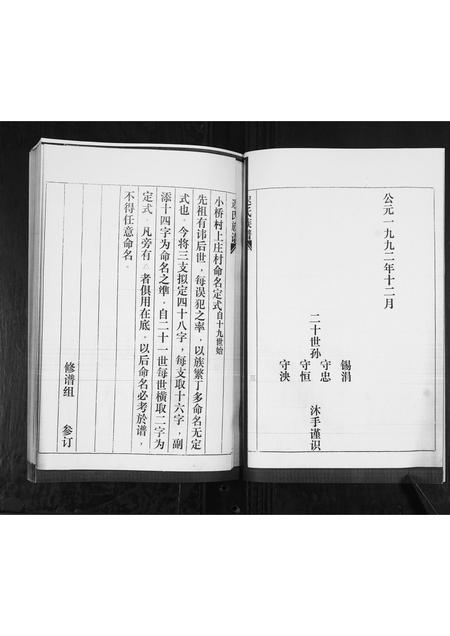 公元一九九二年十二月
二十世孙
锡涓
守忠
守恒
守泱
沐手谨识
氏族谱
小桥村上庄村命名定式自十九世始
先祖有讳后世，每误犯之率，以族繁丁多命名无定
式也。今将三支拟定四十八字，每支取十六字，副
添十四字为命名之準。自二十一世每世横取二字为
定式。凡旁有 者俱用在底。以后命名必考於谱，
不得任意命名。
修谱组 参订